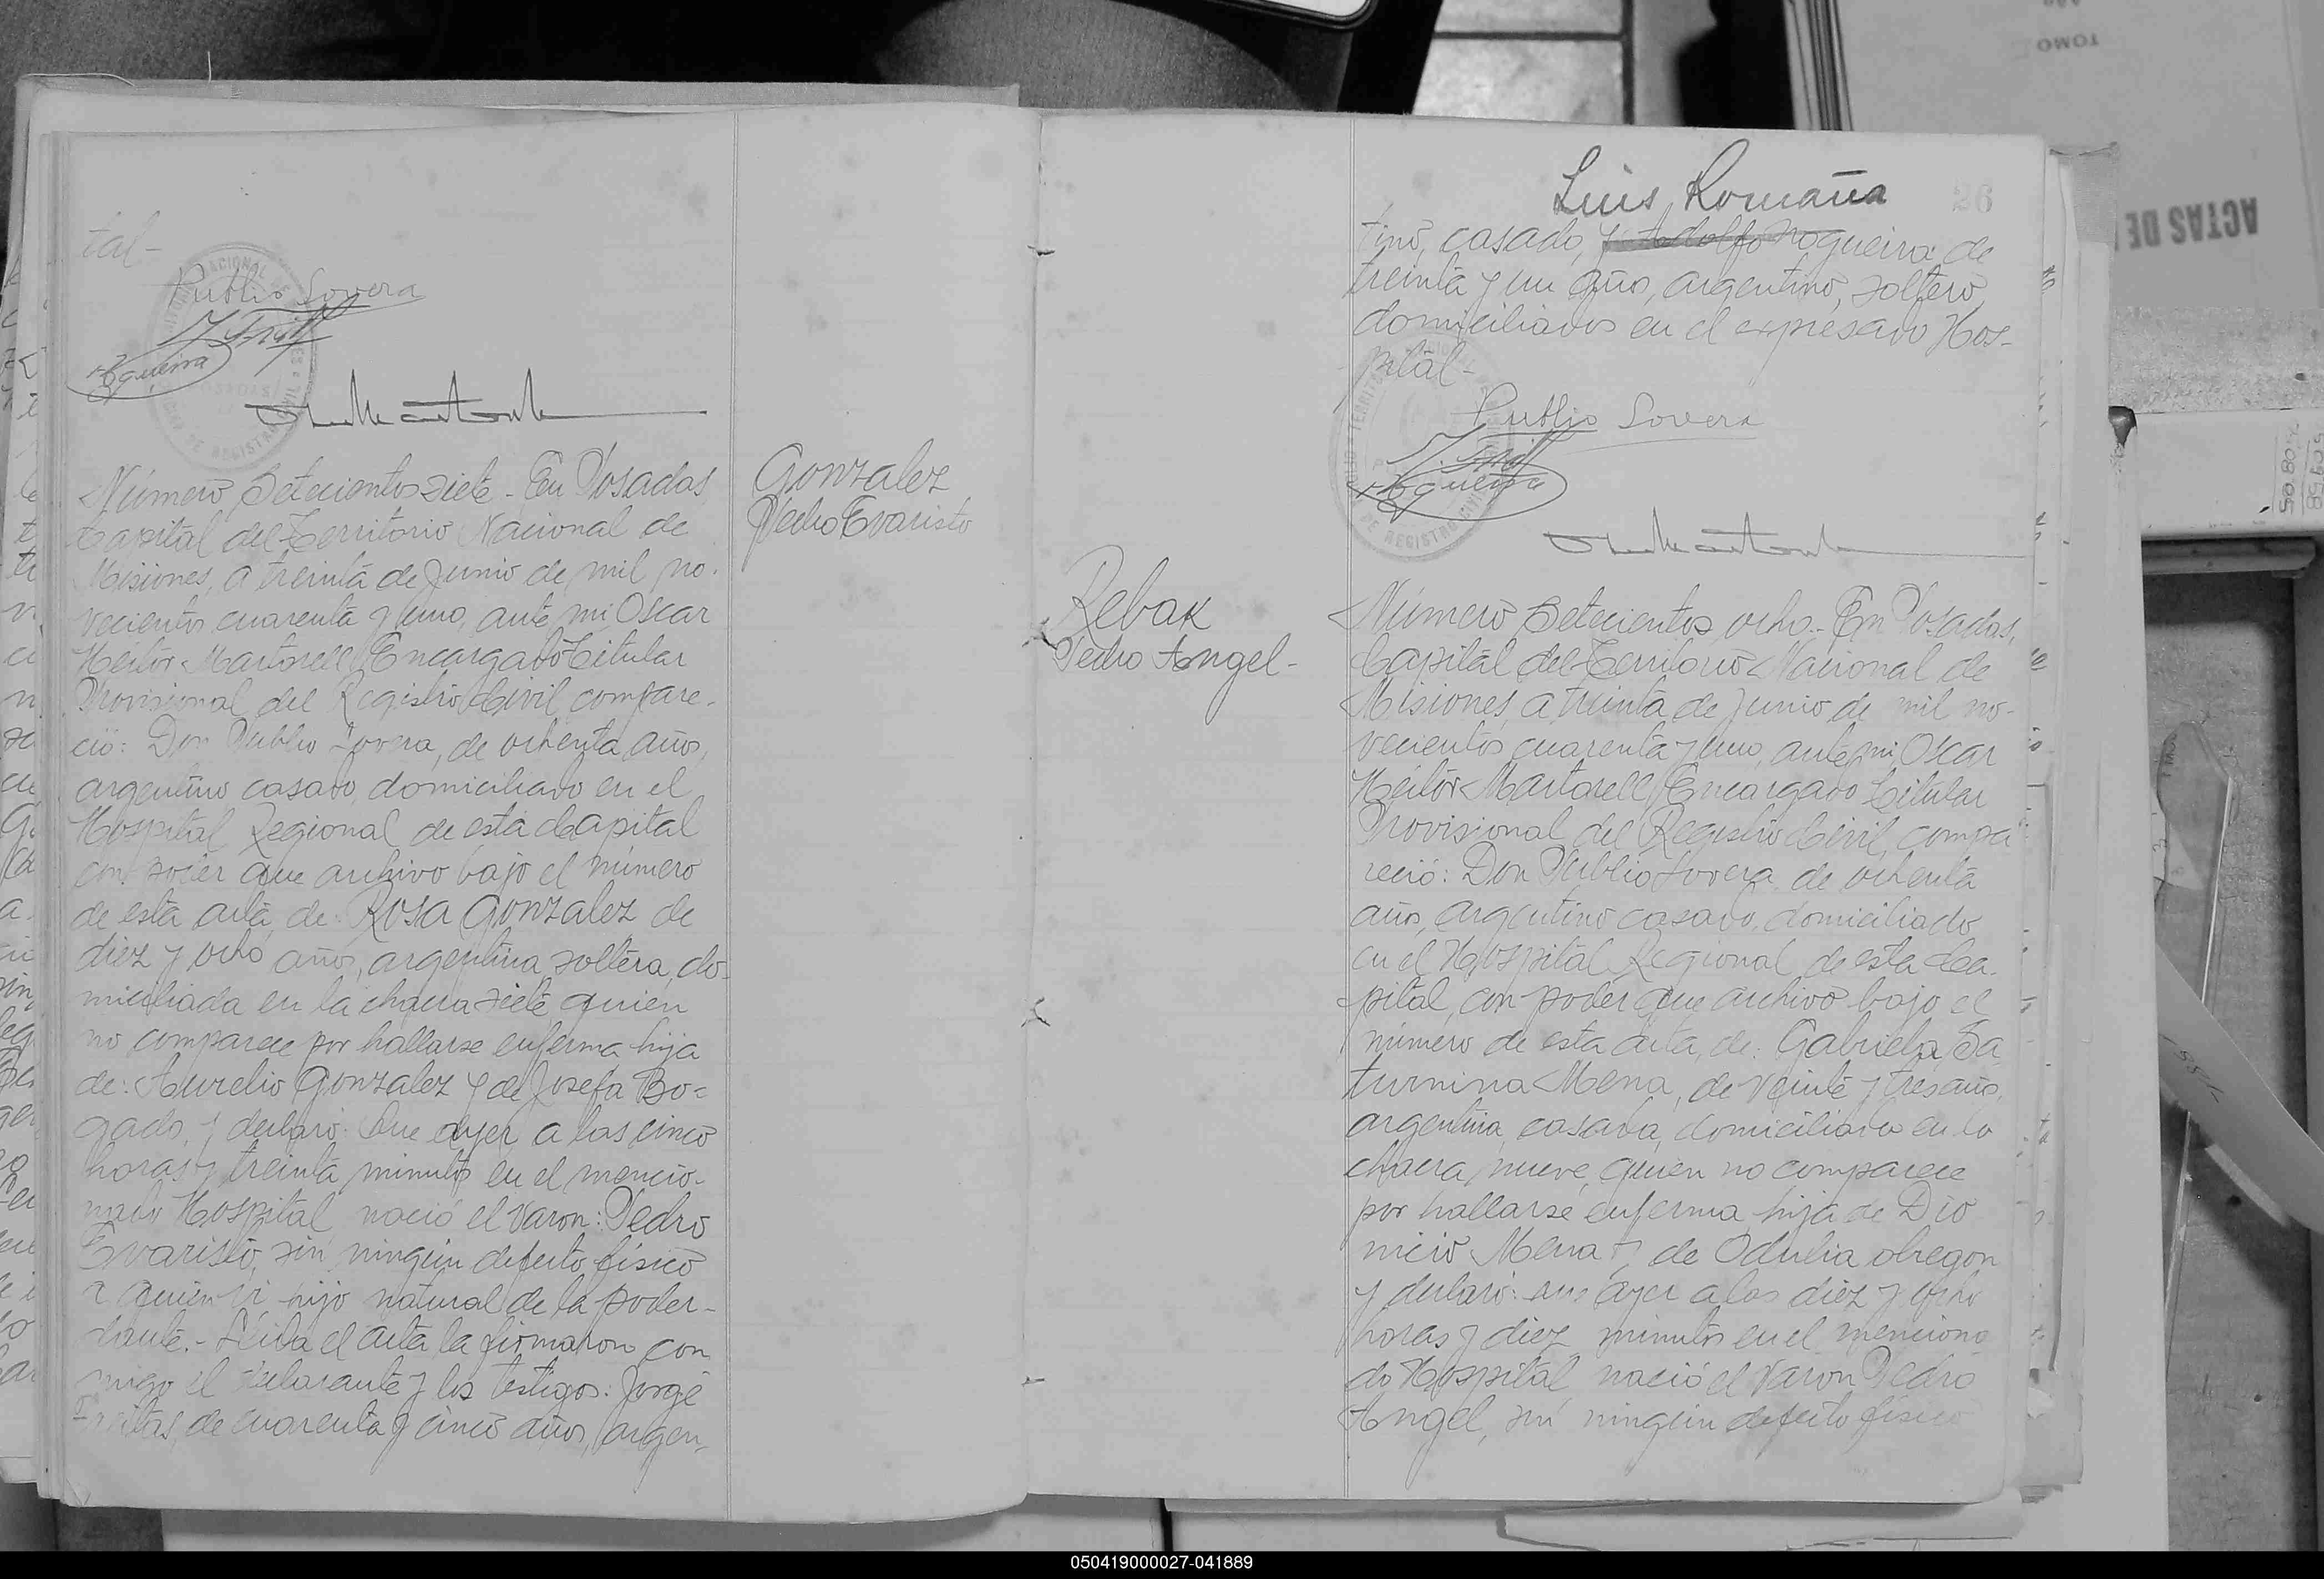 tal-
Publio Lovera
Número Setecientos siete - En Posadas,
Capital del Territorio Nacional de
Misiones, a treinta de Junio de mil no-
vecientos cuarenta y uno, ante mi Oscar
Héctor Martorell, Encargado Titular
Provisional del Registro Civil, compare-
ció: Don Publio Lovera, de ochenta años,
argentino, casado, domiciliado en el
Hospital Regional de esta Capital
con poder que archivo bajo el número
de esta acta, de: Rosa Gonzalez, de
diez y ocho años, argentina, soltera, do-
miciliada en la chacra siete, quien
no comparece por hallarse enferma, hija
de: Aurelio Gonzalez y de Josefa Bo-
gado, y declaró: Que ayer a las cinco
horas y treinta minutos en el mencio-
nado Hospital nació el varon: Pedro
Evaristo, sin ningún defecto físico
a quien vi hijo natural de la poder-
dante.- Leida el acta la firmaron con
migo el declarante y los testigos: Jorge
de cuarenta y cinco años, argen-
Gonzalez
Pedro Evaristo
Luis Romaña
26
tino, casado, y Adolfo Nogueira de
treinta y un años, argentino, soltero,
domiciliados en el expresado Hos-
pital-
Publio Lovera
Rebak
Pedro Angel-
Número Setecientos ocho.- En Posadas,
Capital del Territorio Nacional de
Misiones, a treinta de Junio de mil no-
vecientos cuarenta y uno, ante mi Oscar
Héctor Martorell, Encargado Titular
Provisional del Registro Civil, compa
reció: Don Publio Lovera, de ochenta
años, argentino, casado, domiciliado
en el Hospital Regional de esta Ca-
pital, con poder que archivo bajo el
número de esta acta, de: Gabriela Sa
turnina Mena, de veinte y tres años,
argentina, casada, domiciliada en la
chacra nueve, quien no comparece
por hallarse enferma, hija de Dio
nicio Mena y de Odulia obregon
y declaró: que ayer a las diez y ocho
horas y diez minutos en el menciona
do Hospital nació el varon Pedro
Angel, sin ningún defecto físico
TOMO
ACTAS DE
050419000027-041889